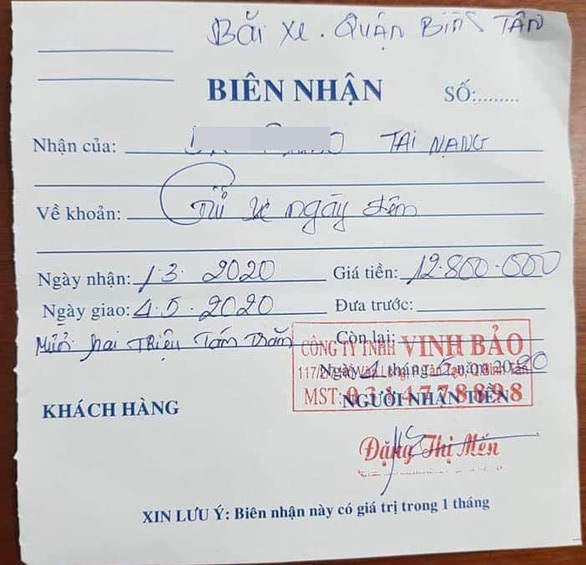 Bãi xe. Quận Bình Tân
BIÊN NHẬN
SỐ:........
Nhận của: TAI NANG
Về khoản: Giữ xe ngày đêm
Ngày nhận: 1.3.2020 Giá tiền: 12.800.000
Ngày giao: 4.5.2020 Đưa trước:
Mười hai Triệu Tám Trăm Còn lại:
CÔNG TY TNHH VINH BẢO
Ngày 4 tháng 5 năm 2020
MST: 0314778898
KHÁCH HÀNG NGƯỜI NHẬN TIỀN
Đặng Thị Mến
XIN LƯU Ý: Biên nhận này có giá trị trong 1 tháng